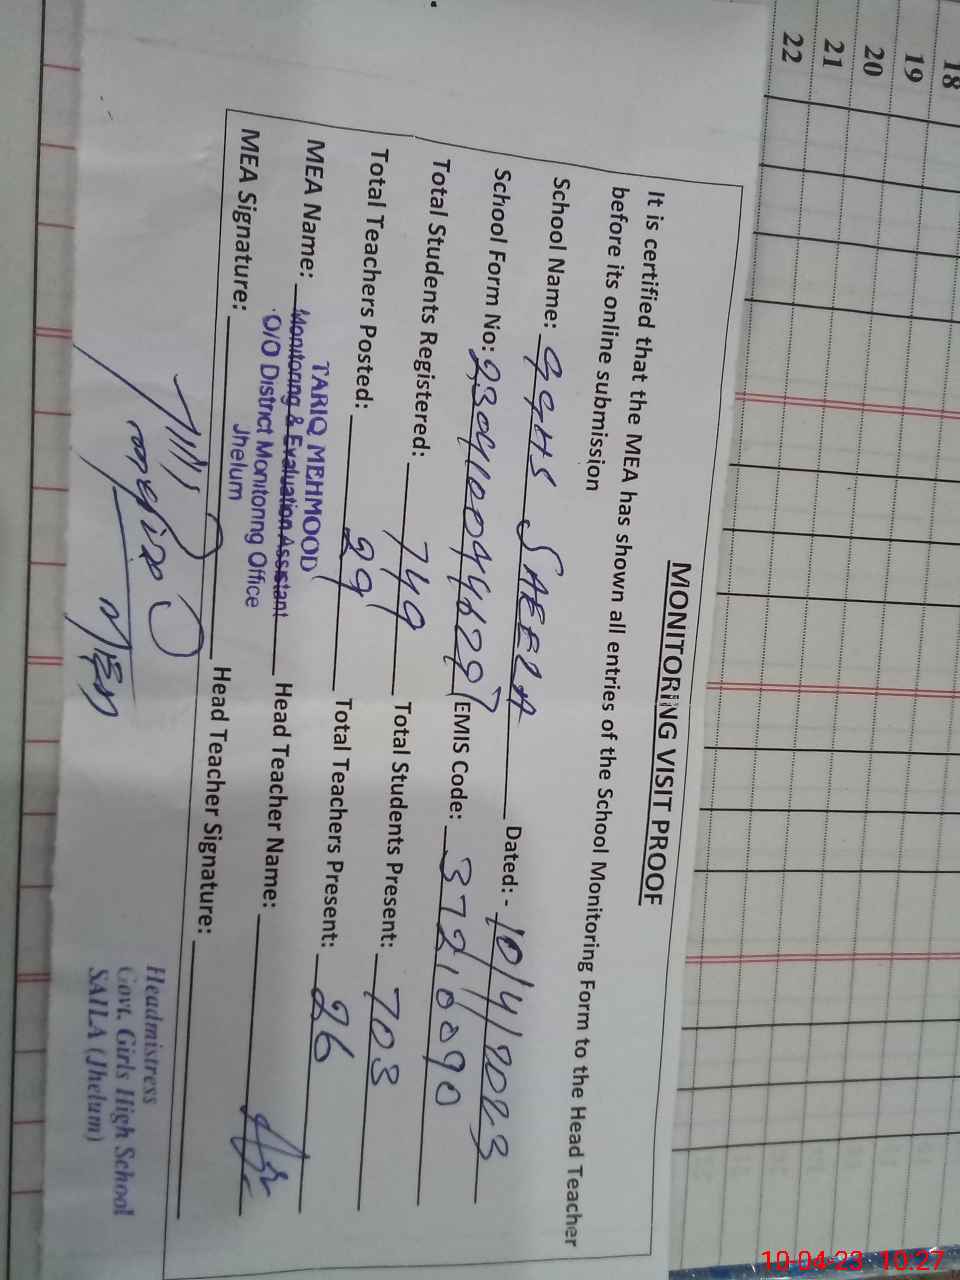 18
19
20
21
22
MONITORING VISIT PROOF
It is certified that the MEA has shown all entries of the School Monitoring Form to the Head Teacher
before its online submission
School Name: GGHS SAEELA Dated: - 10/4/2023
School Form No: EMIS Code: 37210090
Total Students Registered: 749 Total Students Present: 703
Total Teachers Posted: 29 Total Teachers Present: 26
TARIQ MEHMOOD
MEA Name: Monitoring & Evaluation Assistant Head Teacher Name:
O/O District Monitoring Office
Jhelum
MEA Signature: Head Teacher Signature:
Headmistress
Govt. Girls High School
SAILA (Jhelum)
10-04-23 10:27